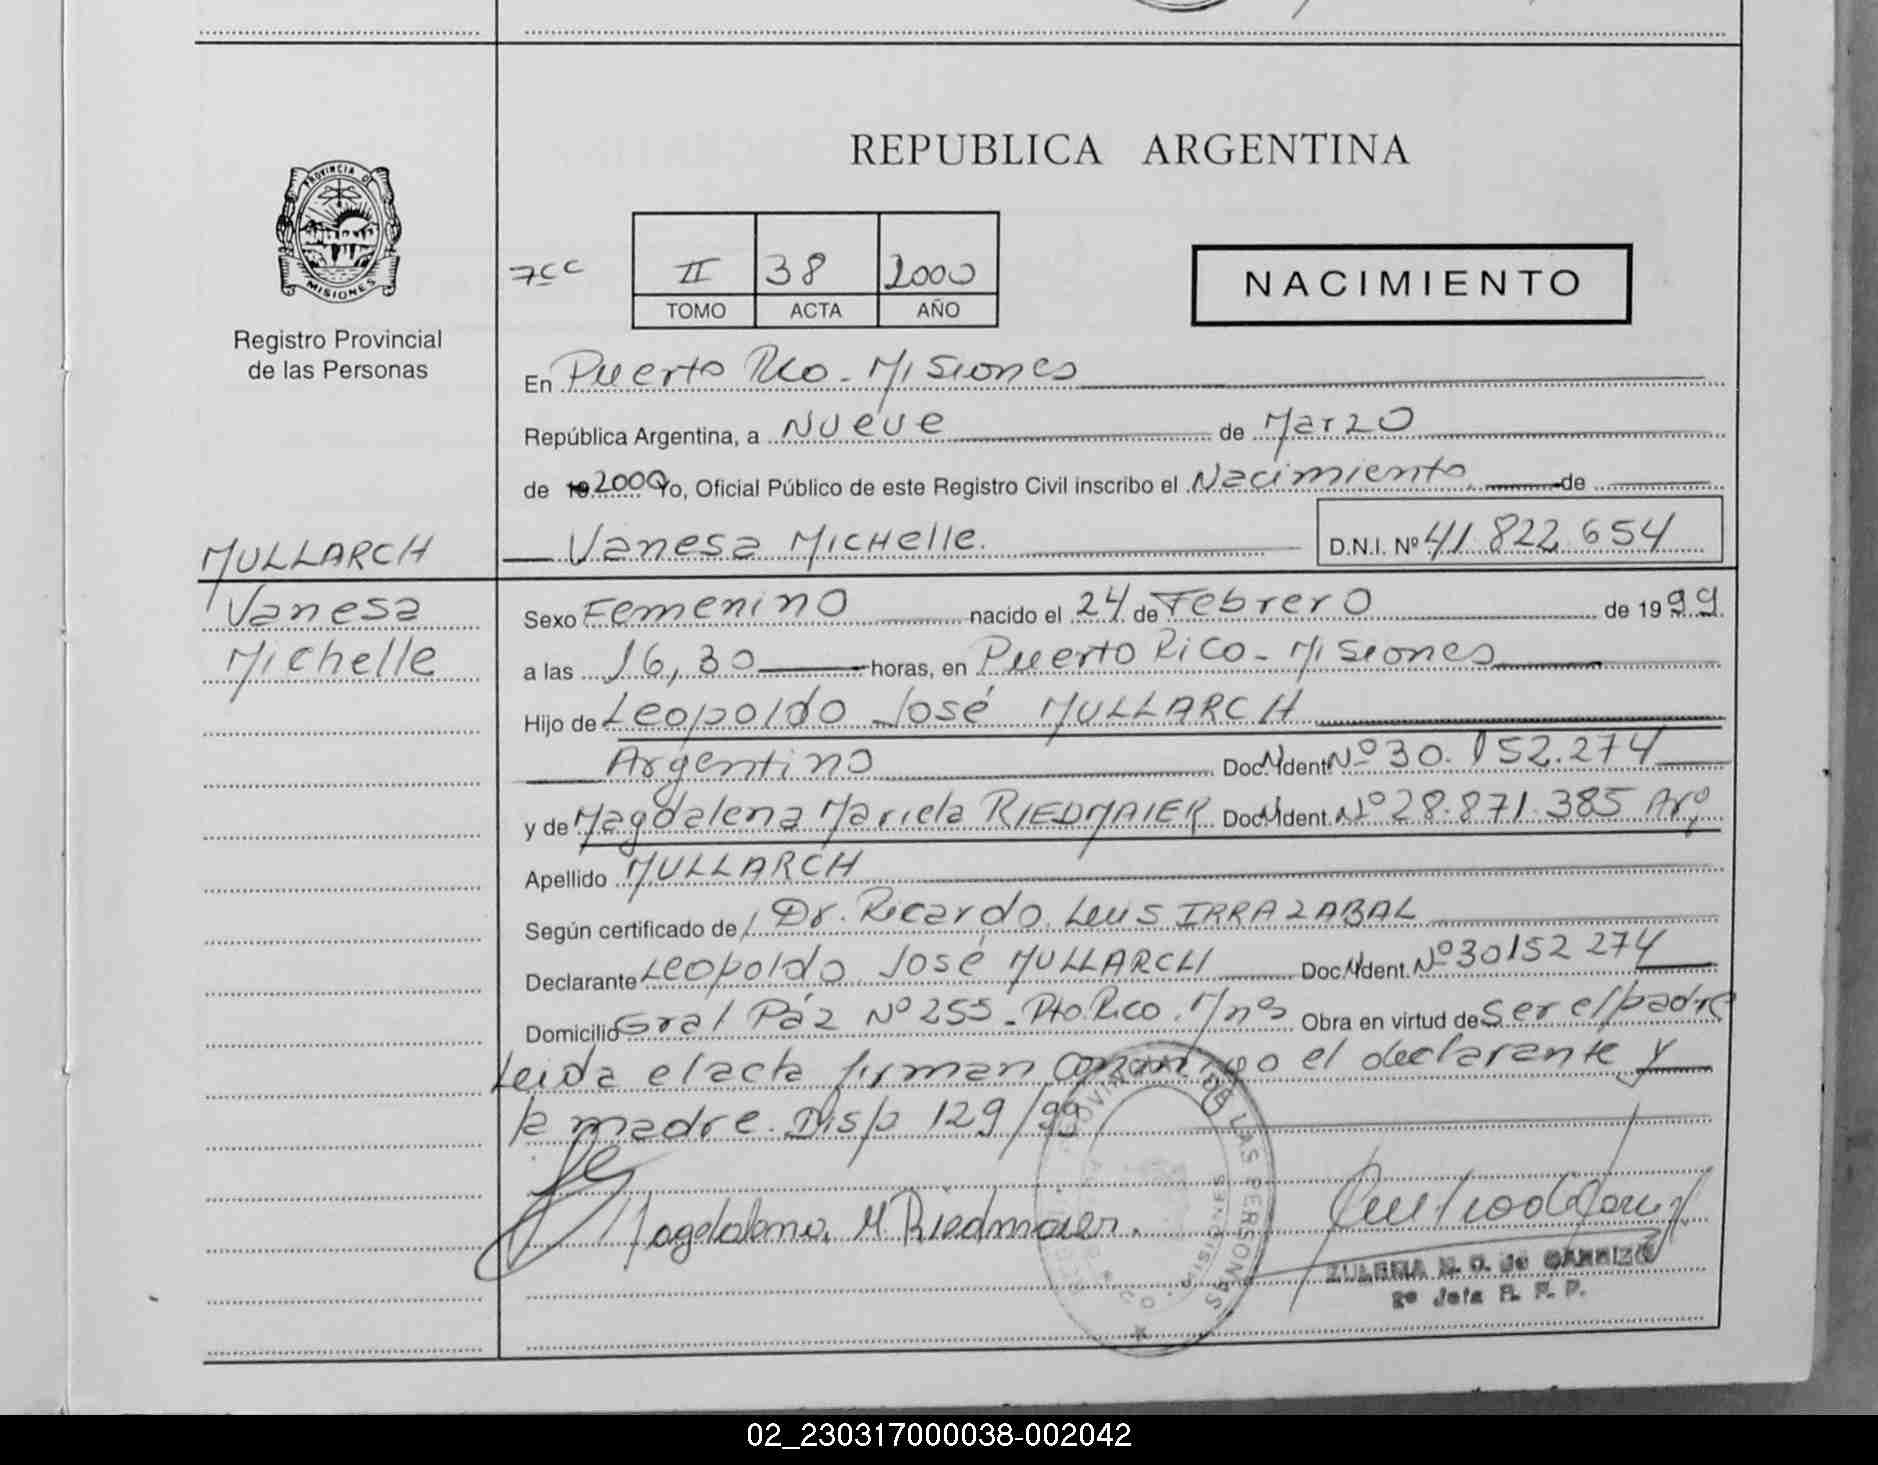 REPUBLICA ARGENTINA
PROVINCIA DE
MISIONES
Registro Provincial
de las Personas
II 38 2000
TOMO ACTA AÑO
NACIMIENTO
En Puerto Rico - Misiones
República Argentina, a Nueve de Marzo
de 19 2000 Yo, Oficial Público de este Registro Civil inscribo el Nacimiento de
Vanesa Michelle. D.N.I. Nº 41.822.654
MULLARCH
Vanesa
Michelle
Sexo Femenino nacido el 24 de Febrero de 1999
a las 16,30 horas, en Puerto Rico - Misiones
Hijo de Leopoldo José MULLARCH
Argentino Doc. Ident. Nº 30.152.274
y de Magdalena Mariela RIEDMAIER Doc. Ident. Nº 28.871.385 Arg
Apellido MULLARCH
Según certificado de Dr. Ricardo Luis IRRAZABAL
Declarante Leopoldo José MULLARCH Doc. Ident. Nº 30152274
Domicilio Gral Páz Nº 255 - Pto Rico. Mnes Obra en virtud de ser el padre
Leida el acta firman conmigo el declarante y
la madre. Disp 129/99
Magdalena M. Riedmaier.
DE LAS PERSONAS
MISIONES
ZULEMA N. O. de
2º Jefa R. P. P.
02_230317000038-002042